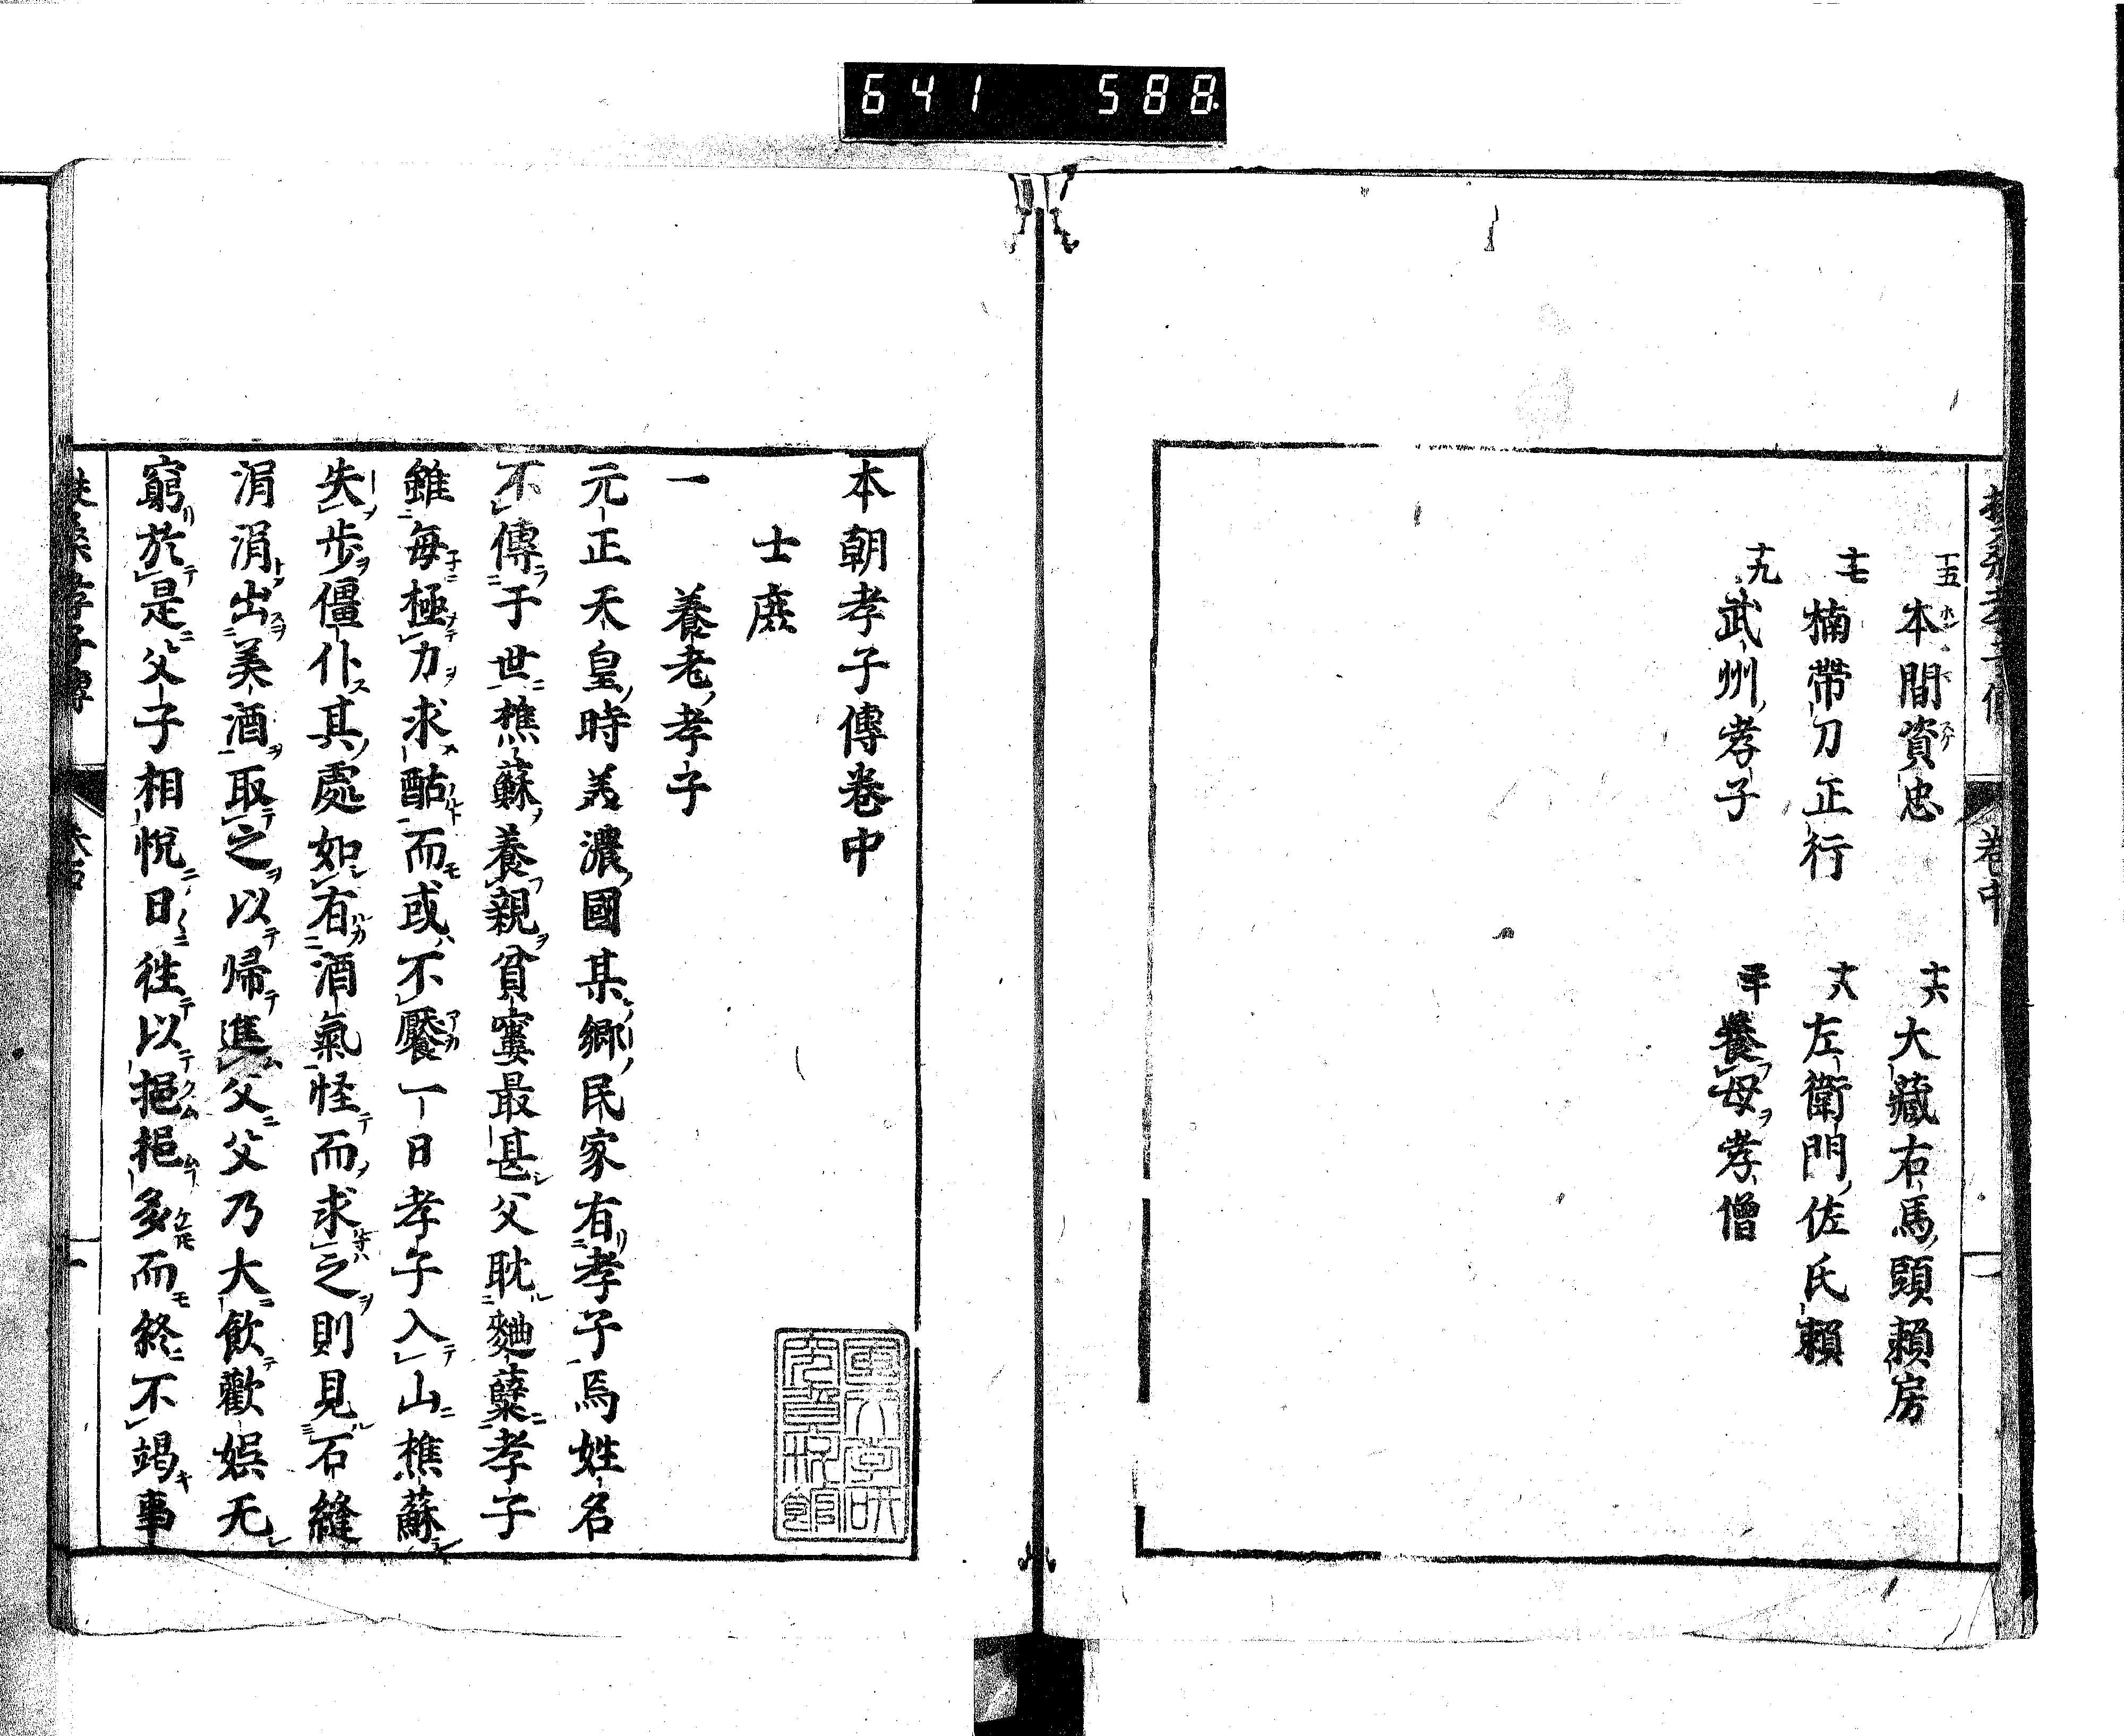 641 588
卷中
十五 本間資忠 十六 大藏右馬頭賴房
十七 楠帶刀正行 十八 左衛門佐氏賴
十九 武州孝子 二十 養母孝僧
本朝孝子傳卷中
士庶
一 養老孝子
元正天皇時美濃國某鄉民家有孝子焉姓名
不傳于世樵蘇養親貧窶最甚父耽麯蘖孝子
雖每極力求酤而或不饜一日孝子入山樵蘇
失步僵仆其處如有酒氣怪而求之則見石縫
涓涓出美酒取之以帰進父父乃大飲歡娯无
窮於是父子相悅日往以挹挹多而終不竭事
國文學研
究資料館